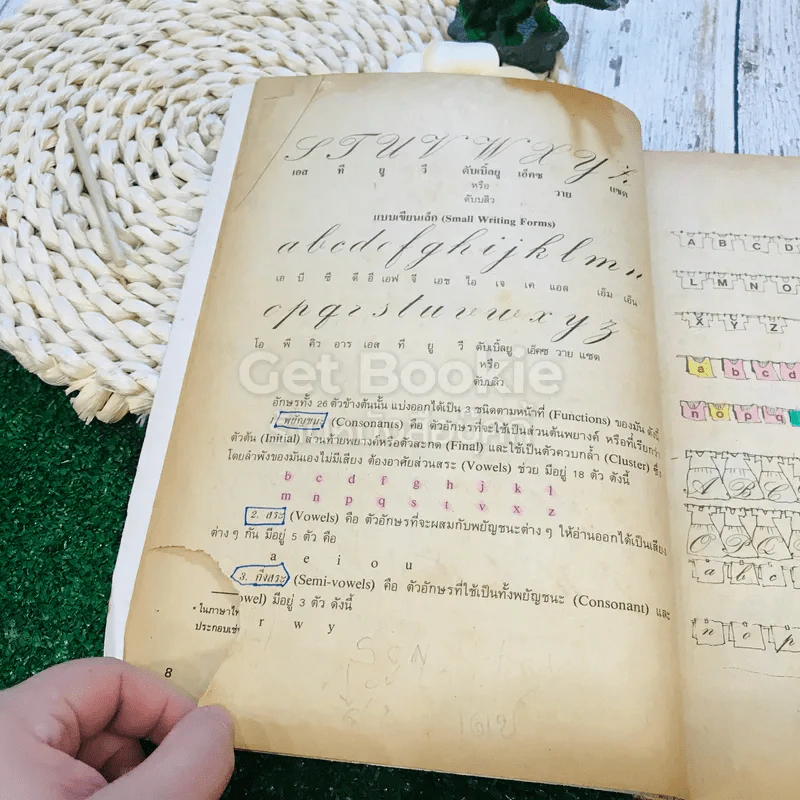 S T U V W X Y Z
เอส ที ยู วี ดับเบิ้ลยู เอ็กซ วาย แซด
หรือ
ดับบลิว
แบบเขียนเล็ก (Small Writing Forms)
a b c d e f g h i j k l m n
เอ บี ซี ดี อี เอฟ จี เอช ไอ เจ เค แอล เอ็ม เอ็น
o p q r s t u v w x y z
โอ พี คิว อาร เอส ที ยู วี ดับเบิ้ลยู เอ็คซ วาย แซด
หรือ
ดับบลิว
Get Bookie
อักษรทั้ง 26 ตัวข้างต้นนั้น แบ่งออกได้เป็น 3 ชนิดตามหน้าที่ (Functions) ของมัน ดังนี้
1. พยัญชนะ (Consonants) คือ ตัวอักษรที่จะใช้เป็นส่วนต้นพยางค์ หรือที่เรียกว่า
ตัวต้น (Initial) ส่วนท้ายพยางค์หรือตัวสะกด (Final) และใช้เป็นตัวควบกล้ำ (Cluster) ซึ่ง
โดยลำพังของมันเองไม่มีเสียง ต้องอาศัยส่วนสระ (Vowels) ช่วย มีอยู่ 18 ตัว ดังนี้
b c d f g h j k l
m n p q s t v x z
2. สระ (Vowels) คือ ตัวอักษรที่จะผสมกับพยัญชนะต่าง ๆ ให้อ่านออกได้เป็นเสียง
ต่าง ๆ กัน มีอยู่ 5 ตัว คือ
a e i o u
3. กึ่งสระ (Semi-vowels) คือ ตัวอักษรที่ใช้เป็นทั้งพยัญชนะ (Consonant) และ
owel) มีอยู่ 3 ตัว ดังนี้
r w y
* ในภาษาไท
ประกอบเช่น
8
A B C D
L M N O
X Y Z
a b c d
n o p q
A B C
O P Q R
a b c
n o p